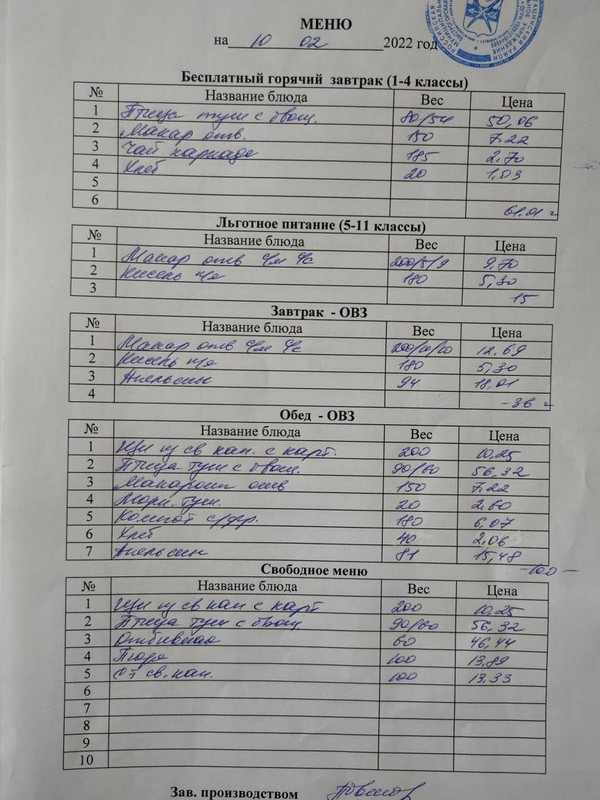 МЕНЮ
на 10 02 2022 год
Бесплатный горячий завтрак (1-4 классы)
№ Название блюда Вес Цена
1 Птица туш с овощ. 80/54 50,06
2 Макар отв. 150 7.22
3 Чай каркаде 185 2,70
4 Хлеб 20 1,03
5
6 61.01
Льготное питание (5-11 классы)
№ Название блюда Вес Цена
1 Макар отв с/м с/с 200/5/9 9,70
2 Кисель п/я 180 5,30
3 15
Завтрак - ОВЗ
№ Название блюда Вес Цена
1 Макар отв с/м с/с 200/10/10 12.69
2 Кисель п/я 180 5,30
3 Апельсин 94 18.01
4 -36
Обед - ОВЗ
№ Название блюда Вес Цена
1 Щи из св кап. с карт. 200 10,25
2 Птица туш с овощ. 90/60 56,32
3 Макароны отв 150 7.22
4 Морк. туш. 20 2.60
5 Компот с/фр. 180 6,07
6 Хлеб 40 2,06
7 Апельсин 81 15,48
-100-
Свободное меню
№ Название блюда Вес Цена
1 Щи из св кап с карт 200 10,25
2 Птица туш с овощ 90/60 56,32
3 Отбивная 60 46,44
4 Пюре 100 13,89
5 Ст св. кап. 100 13.33
6
7
8
9
10
Зав. производством